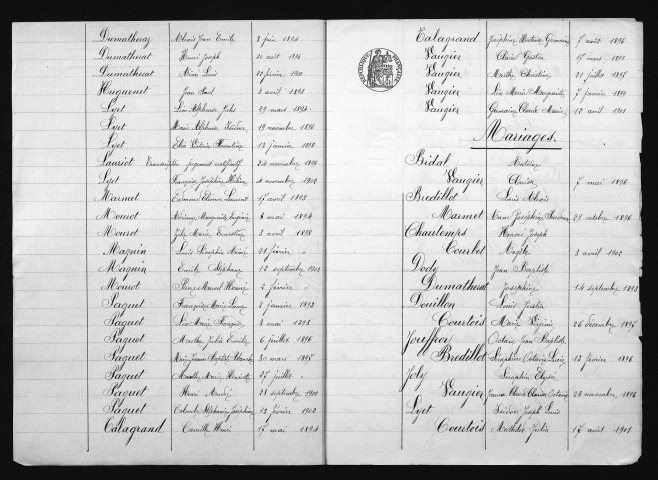 Dumatherat Alexis Jean Emile 8 juin 1894
Dumatherat Henri Joseph 20 août 1896
Dumatherat Aimé Louis 22 février 1900
Huguenet Jean Paul 3 avril 1898
Lyet Léon Alphonse Jules 29 mars 1894
Lyet Marie Alphonse 19 novembre 1896
Lyet 12 janvier 1898
Lauriot Transcription jugement rectificatif 24 novembre 1899
Lyet Françoise Joséphine 4 novembre 1902
Marmet Edmond Etienne Laurent 17 avril 1893
Mourot Marguerite 8 mai 1894
Mourot Marie Ernestine 3 avril 1898
Magnin Louis Séraphin Aimé 21 février "
Magnin Emile Stéphane 12 septembre 1902
Mourot Marcel Henri 2 février "
Paquet Françoise Marie 2 janvier 1893
Paquet Léon Marie François 8 mai 1895
Paquet Marthe Julie 6 juillet 1896
Paquet Marie Jeanne Baptiste 30 mars 1895
Paquet Marthe Marie Henriette 27 juillet "
Paquet Henri 28 septembre 1900
Paquet Colombe Stéphanie Joséphine 13 février 1902
Talagrand Camille Henri 17 mai 1894
Talagrand Joséphine Germaine 7 août 1896
Vaugier Claude Gaston 17 mars 1892
Vaugier Marthe Christine 21 juillet 1895
Vaugier Léa Marie Marguerite 7 janvier 1899
Vaugier Germaine Claude Marie 12 avril 1901
RÉPUBLIQUE FRANÇAISE
Mariages.
Bidal Antoine
Vaugier 7 mai 1896
Bredillot Louis Alexis
Marmet Joséphine 29 octobre 1896
Chautemps Honoré Joseph
Courbot Angèle 3 avril 1902
Dody Jean Baptiste
Dumatherat Joséphine 14 septembre 1893
Douillon Louis Justin
Courtois Marie Virginie 26 décembre 1895
Jouffroy Octave Jean Baptiste
Bredillot Séraphine 12 février 1896
Joly Séraphin
Vaugier Jeanne Claude 28 novembre 1896
Lyet Joseph Louis
Courtois Mathilde Julie 17 avril 1901